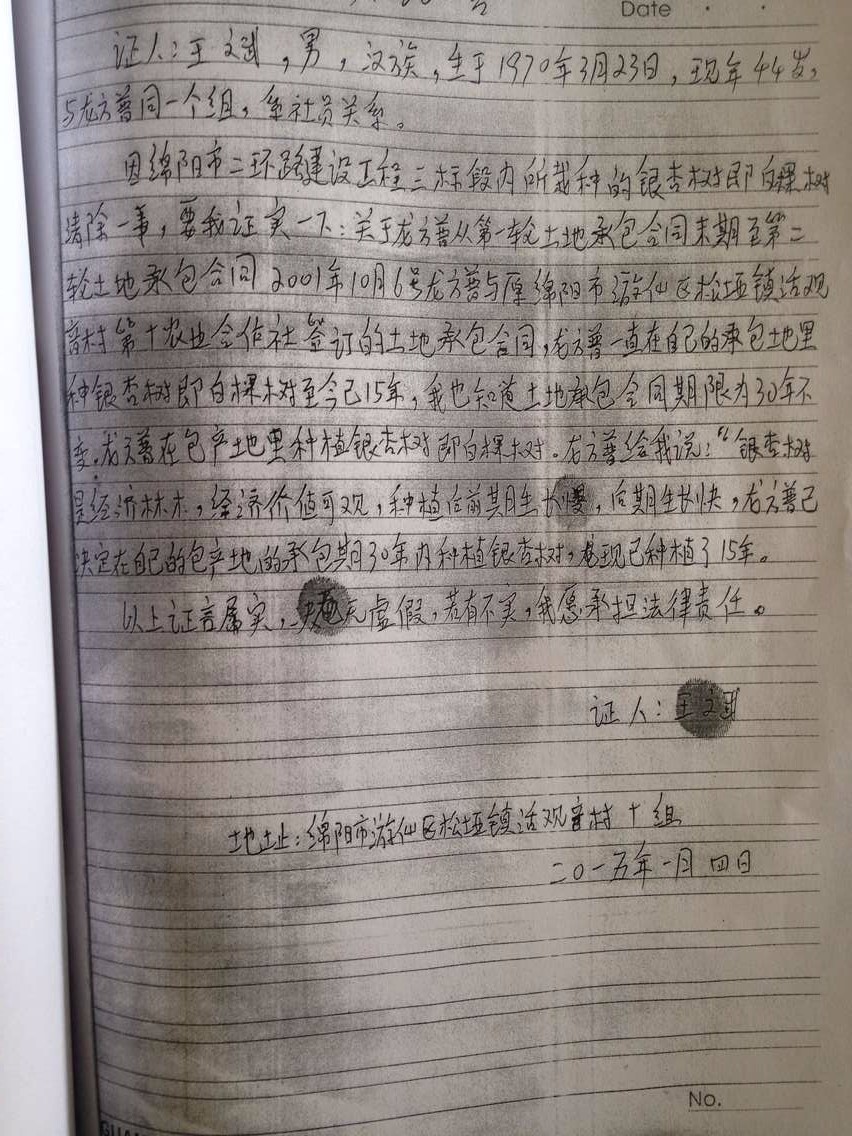 Date
证人:王文武,男,汉族,生于1970年3月23日,现年44岁,
与龙方普同一个组,系社员关系。
因绵阳市二环路建设工程三标段内所栽种的银杏树即白棵树
清除一事,要我证实一下:关于龙方普从第一轮土地承包合同末期至第二
轮土地承包合同2001年10月6号龙方普与原绵阳市游仙区松垭镇活观
音村第十农业合作社签订的土地承包合同,龙方普一直在自己的承包地里
种银杏树即白棵树至今已15年,我也知道土地承包合同期限为30年不
变。龙方普在包产地里种植银杏树即白棵树。龙方普给我说:“银杏树
是经济林木,经济价值可观,种植后前期生长慢,后期生长快,龙方普已
决定在自己的包产地的承包期30年内种植银杏树,现已种植了15年。
以上证言属实,无虚假,若有不实,我愿承担法律责任。
证人:王文武
地址:绵阳市游仙区松垭镇活观音村十组
二0一五年一月四日
No.